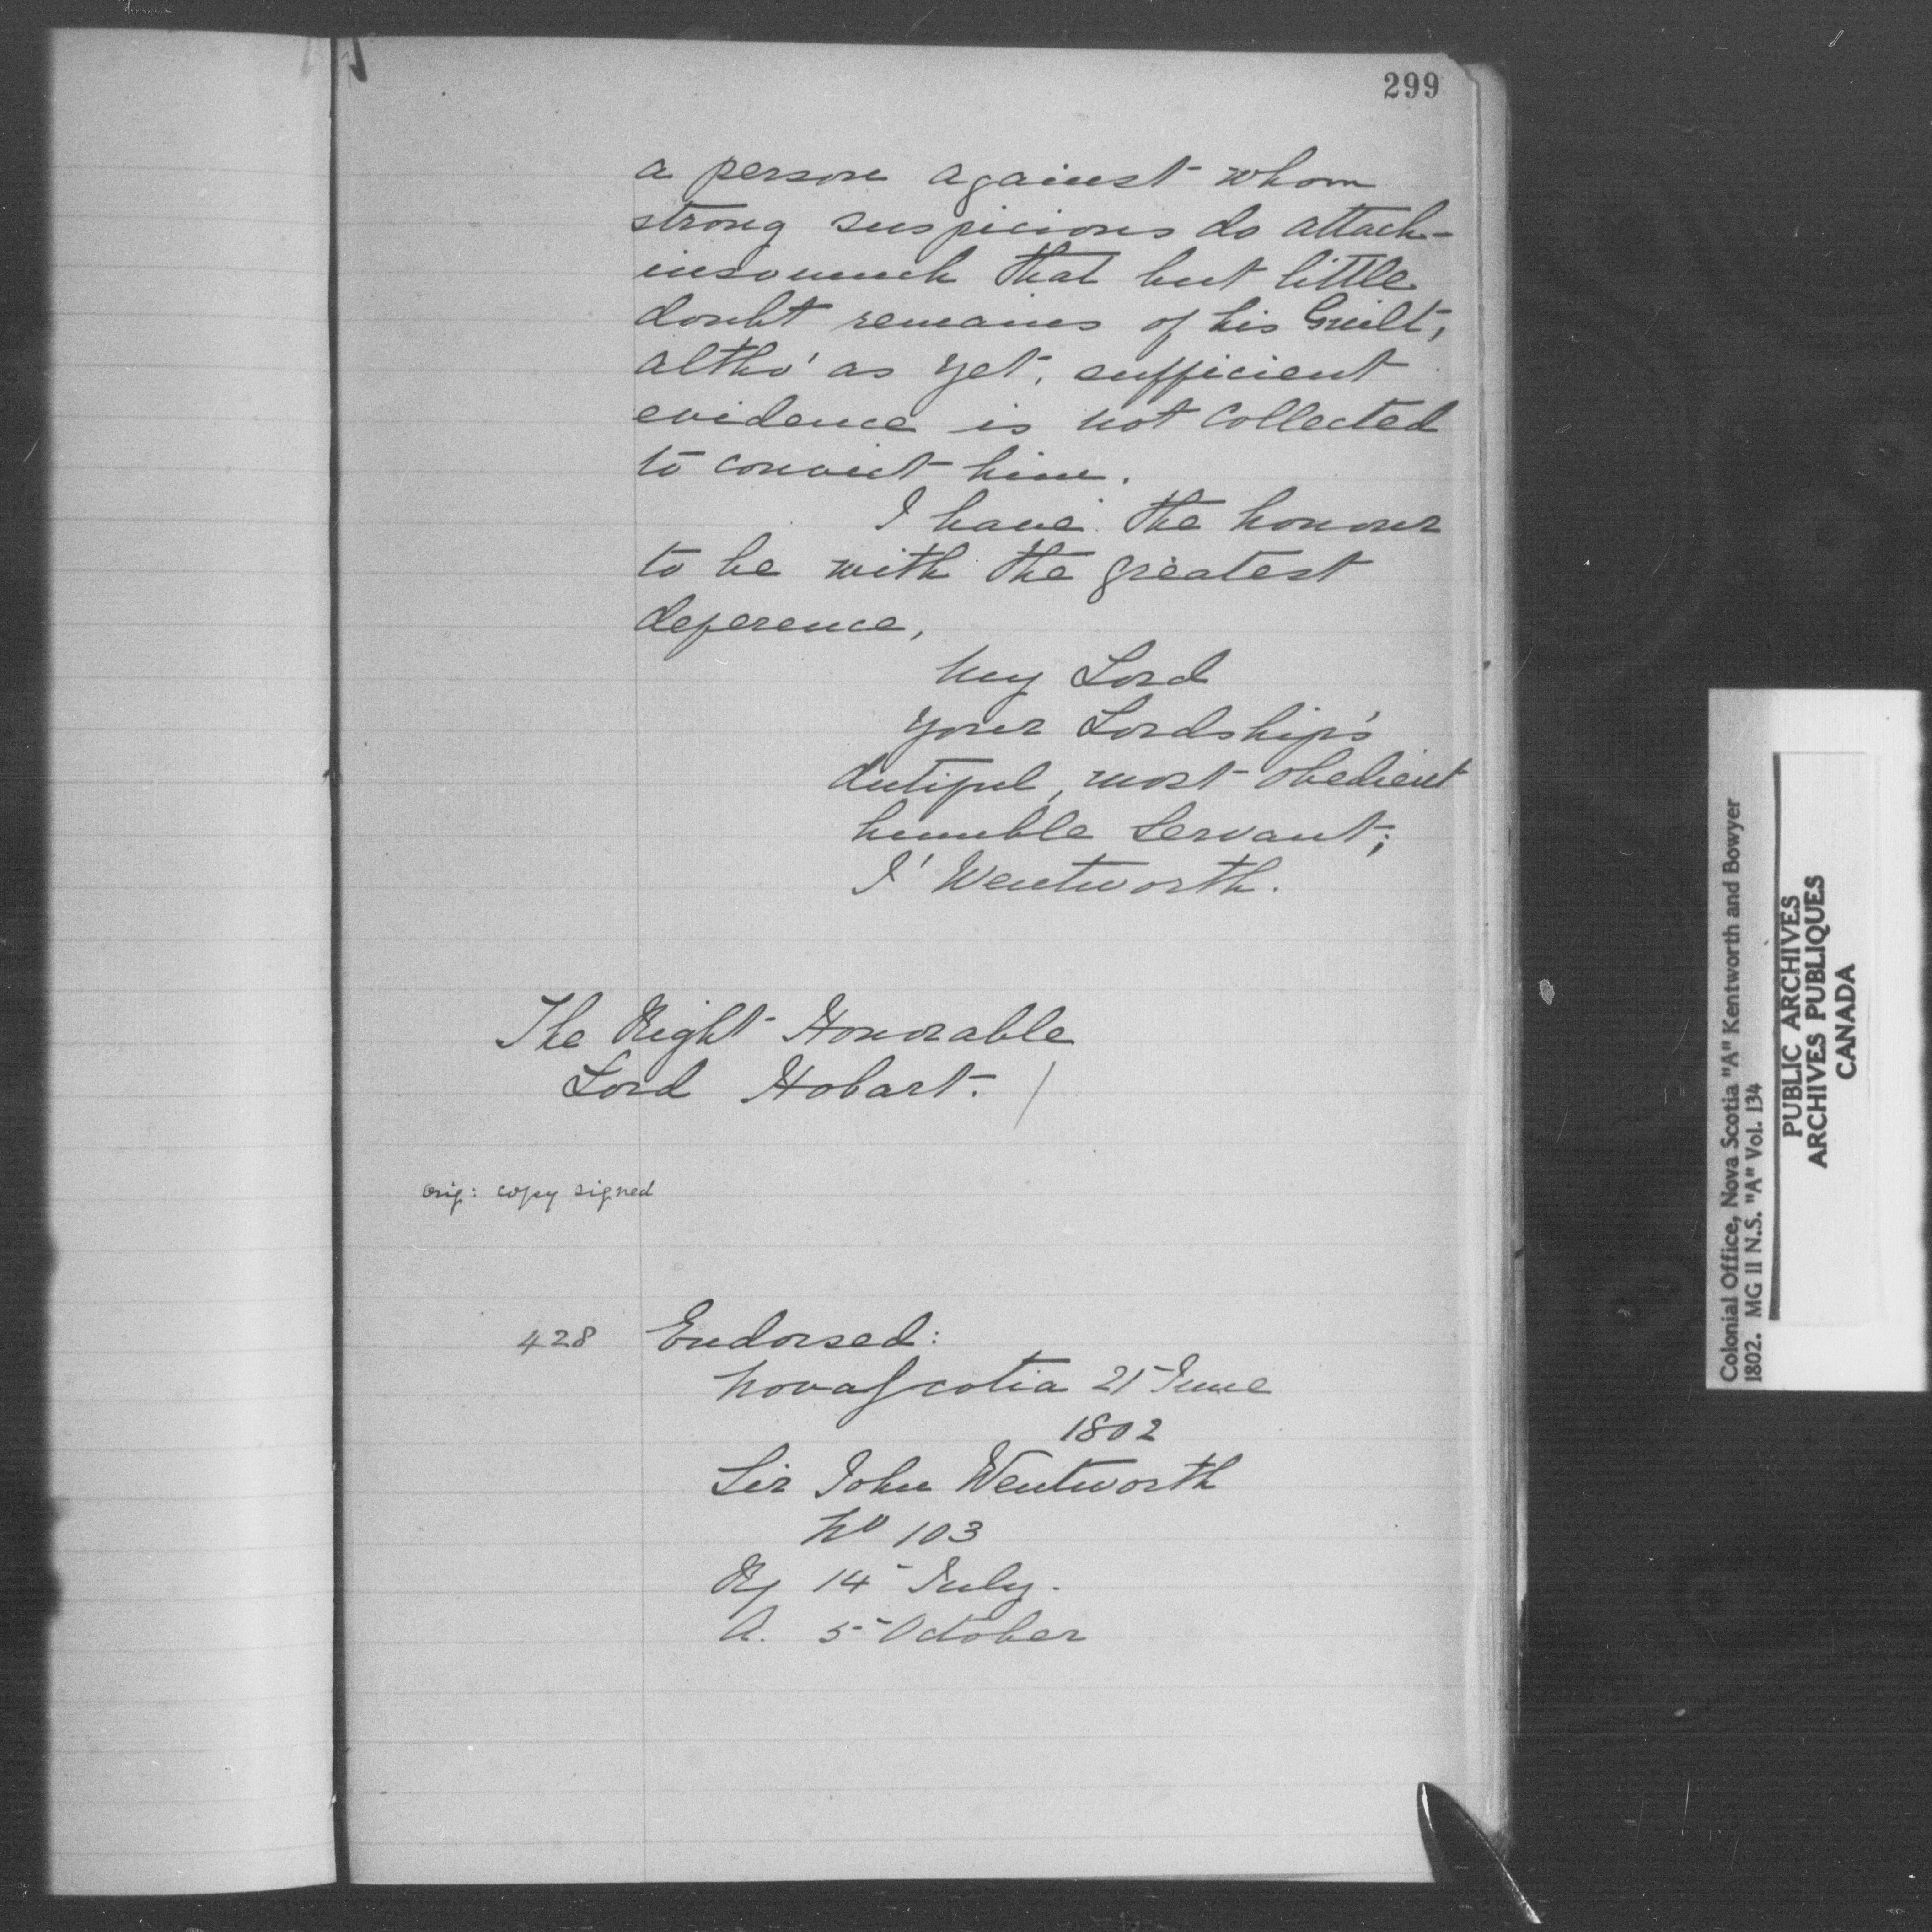 299
a person against whom
strong suspicions do attach-
insomuch that but little
doubt remains of his Guilt,
altho' as yet, sufficient
evidence is not collected
to convict him.
I have the honour
to be with the greatest
deference,
My Lord
Your Lordship's
dutiful, most obedient
humble Servant;
J' Wentworth.
The Right Honorable
Lord Hobart. /
orig: copy signed
428 Endorsed:
Nova Scotia 21 June
1802
Sir John Wentworth
No 103
R/ 14 July.
A. 5 October
Colonial Office, Nova Scotia "A" Kentworth and Bowyer
1802. MG 11 N.S. "A" Vol. 134
PUBLIC ARCHIVES
ARCHIVES PUBLIQUES
CANADA